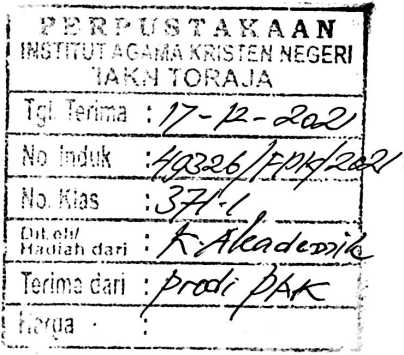 PERPUSTAKAAN
INSTITUT AGAMA KRISTEN NEGERI
IAKN TORAJA
Tgl. Terima : 17-12-2021
No. Induk : 49326/FPK/2021
No. Klas : 371.1
Dibeli/
Hadiah dari : K. Akademik
Terima dari : prodi PAK
Harga :